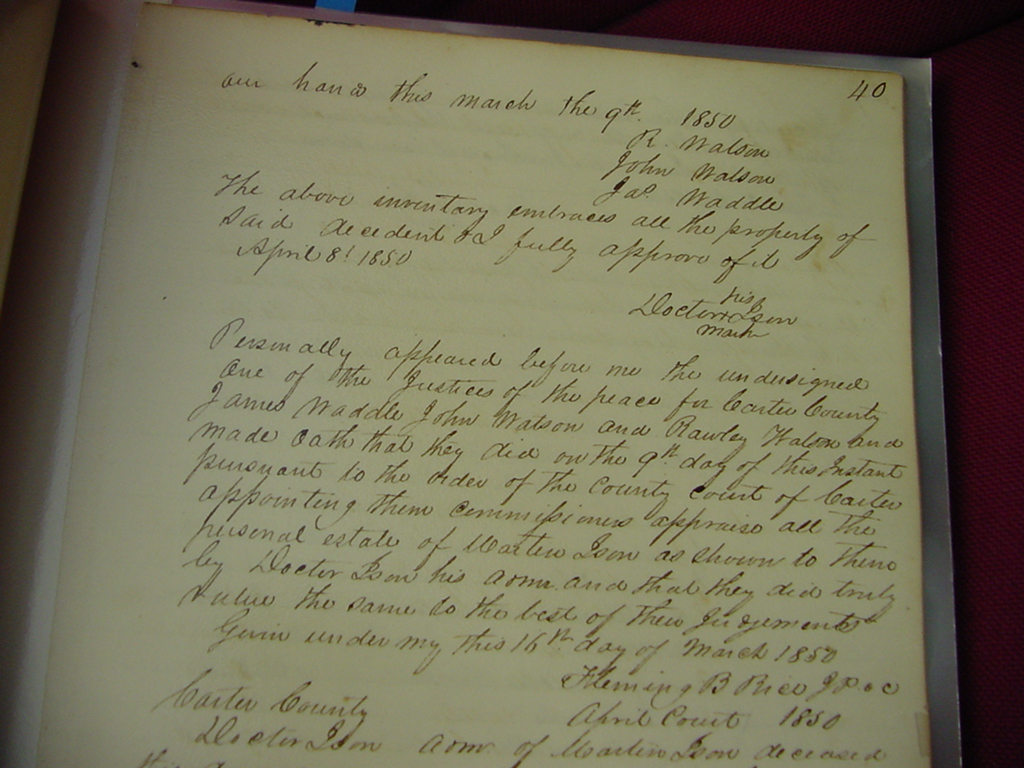 40
our hand this march the 9th 1850
R. Watson
John Watson
Jas. Waddle
The above inventory embraces all the property of
said decedent & I fully approve of it
April 8t 1850
his
Doctor x Ison
mark
Personally appeared before me the undersigned
one of the Justices of the peace for Carter County
James Waddle John Watson and Rawley Watson and
made oath that they did on the 9th day of this Instant
pursuant to the order of the County court of Carter
appointing them commissioners appraise all the
personal estate of Martin Ison as shown to them
by Doctor Ison his admr. and that they did truly
value the same to the best of their Judgements
Givin under my this 16th day of March 1850
Fleming B Rice J P c c
Carter County April Court 1850
Doctor Ison admr of Martin Ison deceased